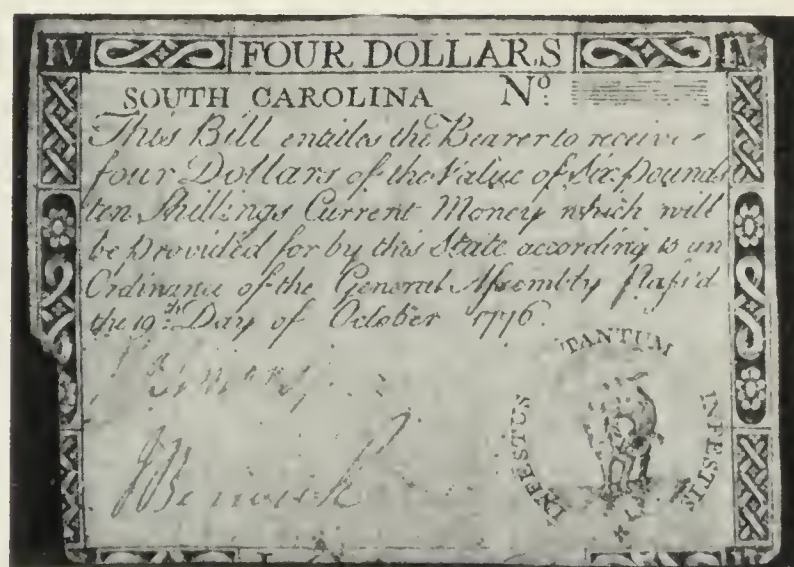 IV FOUR DOLLARS IV
SOUTH CAROLINA Nº.
This Bill entitles the Bearer to receive
four Dollars of the Value of Six Pounds
ten Shillings Current Money which will
be provided for by this State according to an
Ordinance of the General Aſsembly Paſs'd
the 19th Day of October 1776.
TANTUM
INFESTUS
INFESTIS